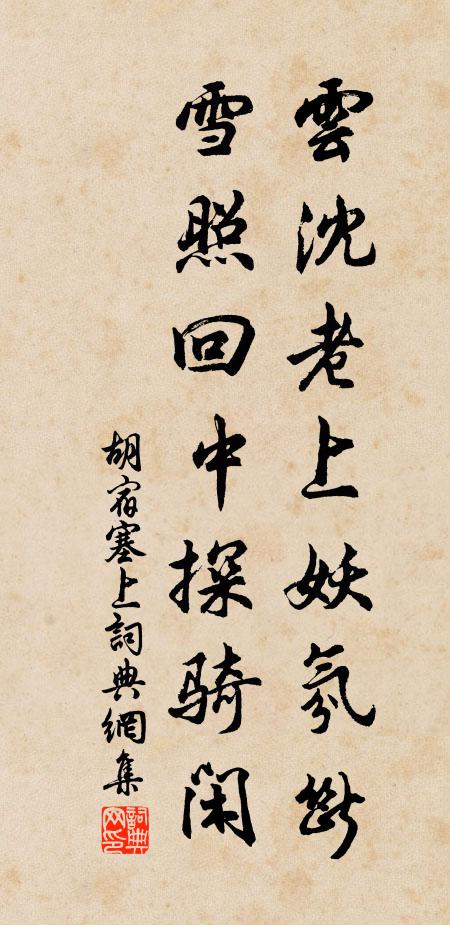 雲沈老上妖氛斷
雪照回中探騎閑
胡宿塞上詞典網集
詞典网印